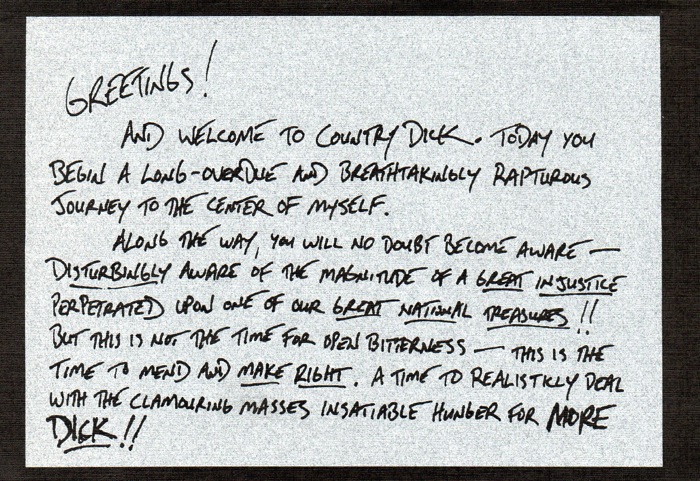 GREETINGS!
AND WELCOME TO COUNTRY DICK. TODAY YOU
BEGIN A LONG-OVERDUE AND BREATHTAKINGLY RAPTUROUS
JOURNEY TO THE CENTER OF MYSELF.
ALONG THE WAY, YOU WILL NO DOUBT BECOME AWARE —
DISTURBINGLY AWARE OF THE MAGNITUDE OF A GREAT INJUSTICE
PERPETRATED UPON ONE OF OUR GREAT NATIONAL TREASURES!!
BUT THIS IS NOT THE TIME FOR OPEN BITTERNESS — THIS IS THE
TIME TO MEND AND MAKE RIGHT. A TIME TO REALISTICLY DEAL
WITH THE CLAMOURING MASSES INSATIABLE HUNGER FOR MORE
DICK!!